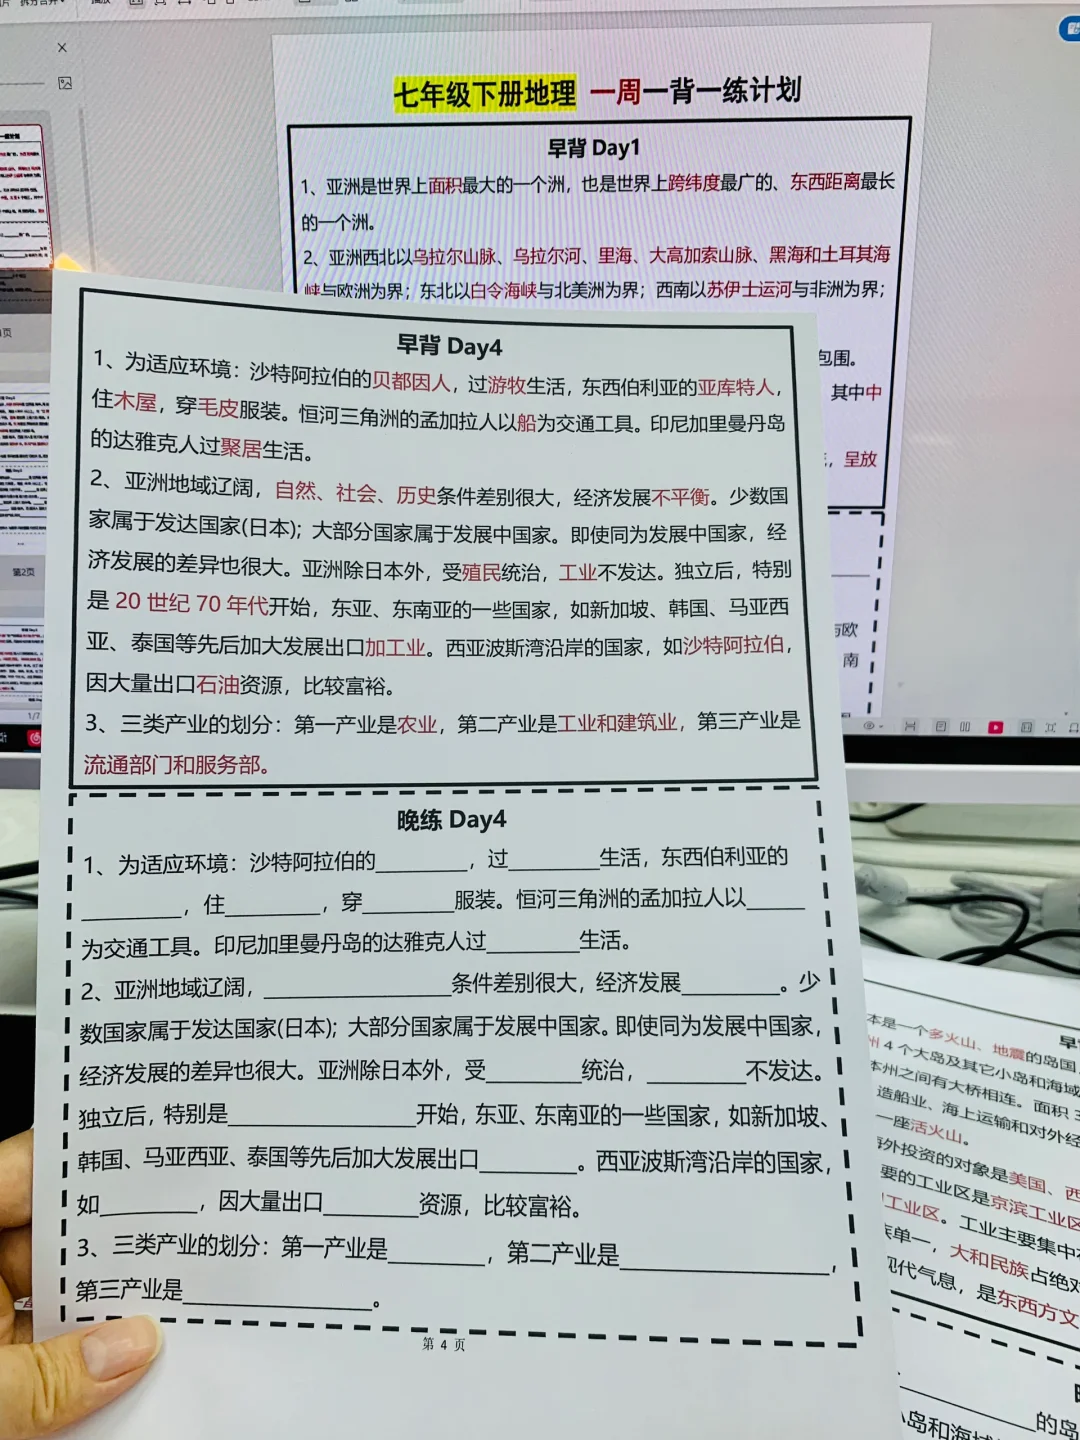 七年级下册地理 一周一背一练计划
早背 Day1
1、亚洲是世界上面积最大的一个洲，也是世界上跨纬度最广的、东西距离最长
的一个洲。
2、亚洲西北以乌拉尔山脉、乌拉尔河、里海、大高加索山脉、黑海和土耳其海
峡与欧洲为界；东北以白令海峡与北美洲为界；西南以苏伊士运河与非洲为界；
包围。
其中中
，呈放
与欧
南
第2页
1/7
早背 Day4
1、为适应环境：沙特阿拉伯的贝都因人，过游牧生活，东西伯利亚的亚库特人，
住木屋，穿毛皮服装。恒河三角洲的孟加拉人以船为交通工具。印尼加里曼丹岛
的达雅克人过聚居生活。
2、亚洲地域辽阔，自然、社会、历史条件差别很大，经济发展不平衡。少数国
家属于发达国家(日本)；大部分国家属于发展中国家。即使同为发展中国家，经
济发展的差异也很大。亚洲除日本外，受殖民统治，工业不发达。独立后，特别
是 20 世纪 70 年代开始，东亚、东南亚的一些国家，如新加坡、韩国、马亚西
亚、泰国等先后加大发展出口加工业。西亚波斯湾沿岸的国家，如沙特阿拉伯，
因大量出口石油资源，比较富裕。
3、三类产业的划分：第一产业是农业，第二产业是工业和建筑业，第三产业是
流通部门和服务部。
晚练 Day4
1、为适应环境：沙特阿拉伯的________，过________生活，东西伯利亚的
_________，住________，穿________服装。恒河三角洲的孟加拉人以_____
为交通工具。印尼加里曼丹岛的达雅克人过________生活。
2、亚洲地域辽阔，________________条件差别很大，经济发展________。少
数国家属于发达国家(日本)；大部分国家属于发展中国家。即使同为发展中国家，
经济发展的差异也很大。亚洲除日本外，受________统治，________不发达。
独立后，特别是________________开始，东亚、东南亚的一些国家，如新加坡、
韩国、马亚西亚、泰国等先后加大发展出口________。西亚波斯湾沿岸的国家，
如________，因大量出口________资源，比较富裕。
3、三类产业的划分：第一产业是________，第二产业是__________________，
第三产业是________________。
第 4 页
本是一个多火山、地震的岛国
州 4 个大岛及其它小岛和海域
本州之间有大桥相连。面积
造船业、海上运输和对外经
一座活火山。
海外投资的对象是美国、西
要的工业区是京滨工业区
工业区。工业主要集中
族单一，大和民族占绝对
现代气息，是东西方文
的岛
小岛和海域